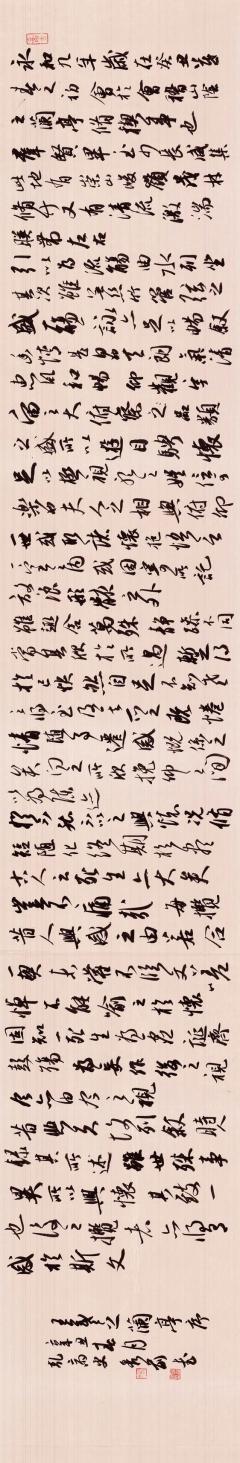 永和九年歲在癸丑暮
春之初會於會稽山陰
之蘭亭脩禊事也
羣賢畢至少長咸集
此地有崇山峻領茂林
脩竹又有清流激湍
暎帶左右
引以為流觴曲水列坐
其次雖無絲竹管弦之
盛一觴一詠亦足以暢敘
幽情是日也天朗氣清
惠風和暢仰觀宇
宙之大俯察品類
之盛所以遊目騁懷
足以極視聽之娛信可
樂也夫人之相與俯仰
一世或取諸懷抱悟言
一室之內或因寄所託
放浪形骸之外
雖趣舍萬殊靜躁不同
當其欣於所遇暫得
於己怏然自足不知老
之將至及其所之既惓
情隨事遷感慨係之
矣向之所欣俛仰之間
以為陳迹
猶不能不以之興懷況脩
短隨化終期於盡
古人云死生亦大矣
豈不痛哉每攬
昔人興感之由若合
一契未嘗不臨文嗟
悼不能喻之於懷
固知一死生為虛誕齊
彭殤為妄作後之視
今亦由今之視
昔悲夫故列敘時人
錄其所述雖世殊事
異所以興懷其致一
也後之攬者亦將有
感於斯文
王羲之蘭亭序
辛丑春月